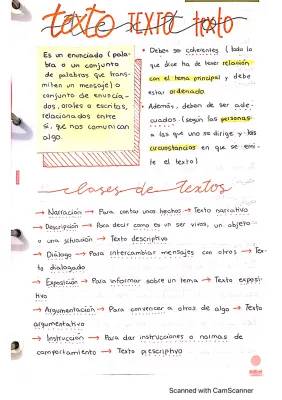 texto TEXTO texto
Es un enunciado (pala-
bra o un conjunto
de palabras que trans-
miten un mensaje) o
conjunto de enuncia-
dos, orales o escritos,
relacionados entre
sí, que nos comunican
algo.
• Deben ser coherentes (todo lo
que dice ha de tener relación
con el tema principal) y debe
estar ordenado.
• Además, deben de ser ade-
cuados (según las personas
a las que uno se dirige y las
circunstancias en que se emi-
te el texto)
clases de textos
→ Narración → Para contar unos hechos → Texto narrativo
→ Descripción → Para decir como es un ser vivo, un objeto
o una situación → Texto descriptivo
→ Diálogo → Para intercambiar mensajes con otros → Tex-
to dialogado
→ Exposición → Para informar sobre un tema → Texto exposi-
tivo
→ Argumentación → Para convencer a otros de algo → Texto
argumentativo
→ Instrucción → Para dar instrucciones o normas de
comportamiento → Texto prescriptivo
Scanned with CamScanner